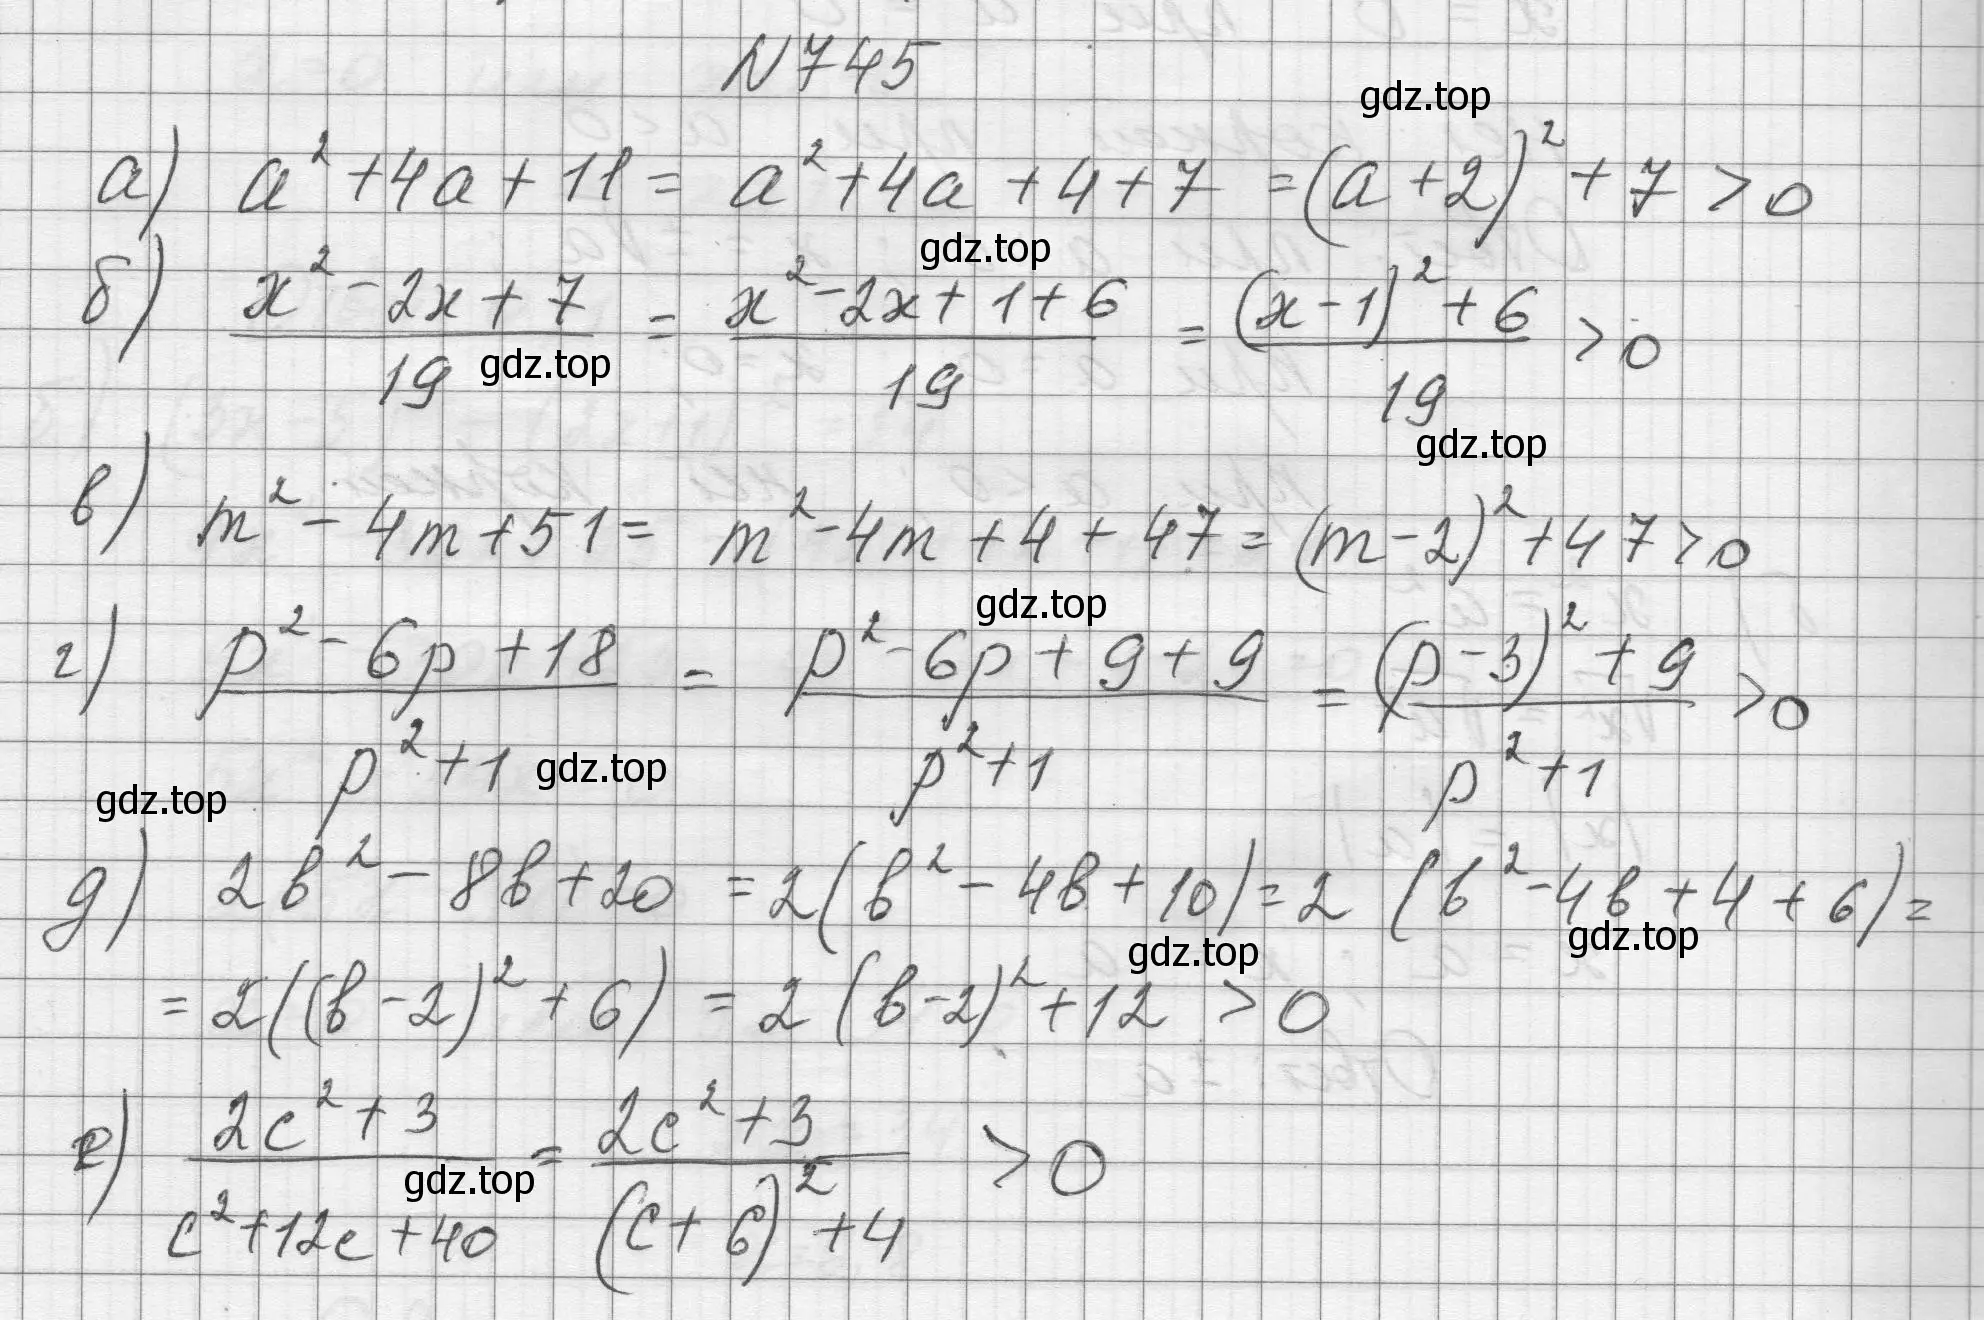 N 745
gdz.top
а) a² + 4a + 11 = a² + 4a + 4 + 7 = (a + 2)² + 7 > 0
gdz.top
б) (x² - 2x + 7)/19 = (x² - 2x + 1 + 6)/19 = ((x - 1)² + 6)/19 > 0
gdz.top
gdz.top
в) m² - 4m + 51 = m² - 4m + 4 + 47 = (m - 2)² + 47 > 0
gdz.top
г) (p² - 6p + 18)/(p² + 1) = (p² - 6p + 9 + 9)/(p² + 1) = ((p - 3)² + 9)/(p² + 1) > 0
gdz.top
gdz.top
д) 2b² - 8b + 20 = 2(b² - 4b + 10) = 2 (b² - 4b + 4 + 6) =
gdz.top gdz.top
= 2((b - 2)² + 6) = 2(b - 2)² + 12 > 0
е) (2c² + 3)/(c² + 12c + 40) = (2c² + 3)/((c + 6)² + 4) > 0
gdz.top